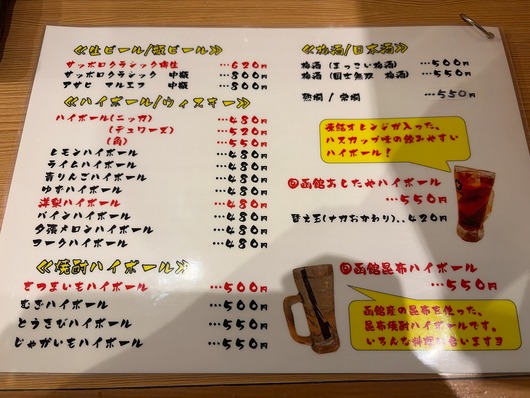 ≪生ビール/瓶ビール≫
サッポロクラシック樽生 …620円
サッポロクラシック 中瓶 …800円
アサヒ マルエフ 中瓶 …800円
≪ハイボール/ウィスキー≫
ハイボール(ニッカ) …480円
(デュワーズ) …520円
(角) …550円
レモンハイボール …480円
ライムハイボール …480円
青りんごハイボール …480円
ゆずハイボール …480円
洋梨ハイボール …480円
パインハイボール …480円
夕張メロンハイボール …480円
コークハイボール …480円
≪焼酎ハイボール≫
さつまいもハイボール …500円
むぎハイボール …500円
とうきびハイボール …550円
じゃがいもハイボール …550円
≪梅酒/日本酒≫
梅酒 (まっこい梅酒) …500円
梅酒 (国士無双 梅酒) …550円
熱燗 / 常燗 …550円
凍結オレンジが入った、
ハスカップ味の飲みやすい
ハイボール!
函館あしたやハイボール
…550円
替え玉(ナカおかわり)..420円
函館昆布ハイボール
…550円
函館産の昆布を使った、
昆布焼酎ハイボールです。
いろんな料理に合いますヨ